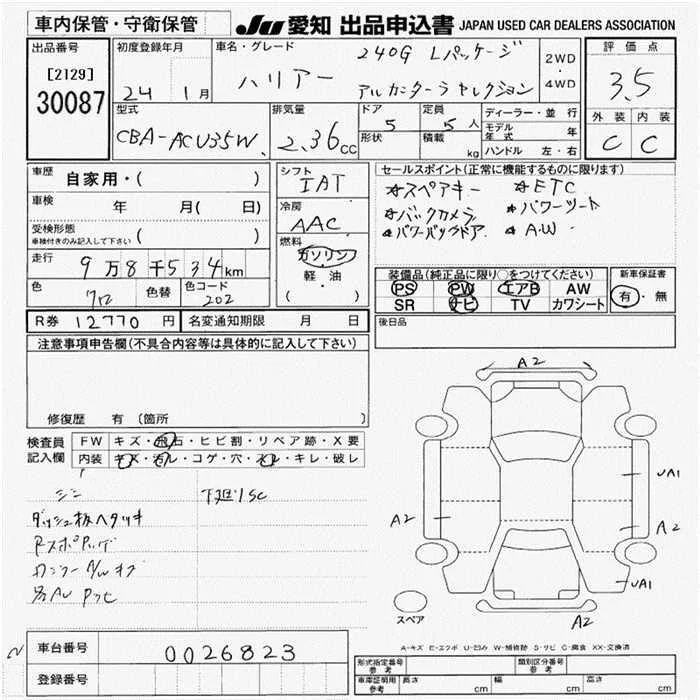 車内保管・守衛保管
JU 愛知 出品申込書 JAPAN USED CAR DEALERS ASSOCIATION
出品番号
[2129]
30087
初度登録年月
24 1月
車名・グレード
ハリアー
240G Lパッケージ
アルカンターラセレクション
2WD
・
4WD
評価点
3.5
外装 内装
C C
型式
CBA-ACU35W
排気量
2.36cc
ドア
5
形状
定員
5人
積載
kg
ディーラー・並行
モデル年式 年
ハンドル 左・右
車歴
自家用・( )
車検
年 月(日)
受検形態
車検付きのみ記入して下さい ( )
走行
9万8千534km
色
クロ
色替
色コード
202
R券 12770円
名変通知期限 月 日
シフト
IAT
冷房
AAC
燃料
ガソリン
・
軽・油
( )
セールスポイント(正常に機能するものに限ります)
☆スペアキー ☆ETC
☆バックカメラ ☆パワーシート
☆パワーバックドア ☆A.W
装備品(純正品に限り〇をつけてください)
PS PW エアB AW
SR ナビ TV カワシート
新車保証書
有・無
後日品
注意事項申告欄(不具合内容等は具体的に記入して下さい)
修復歴 有 〔箇所 〕
検査員
記入欄
FW キズ・飛石・ヒビ割・リペア跡・X要
内装 キズ・汚レ・コゲ・穴・スレ・キレ・破レ
下廻りSC
A2
UA1
A2
A2
UA1
スペア
A2
A-キズ E-エクボ U-凹み W-補修跡 S-サビ C-腐食 XX-交換済
車台番号 0026823
登録番号
形式指定番号
参考
類別区分番号
参考
車庫証明用
参考
長さ cm 幅 cm 高さ cm